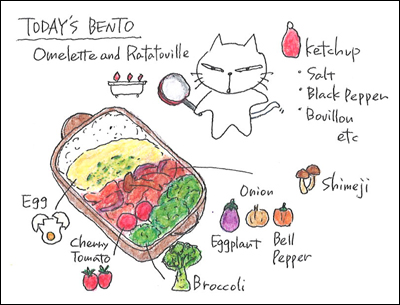 TODAY'S BENTO
Omelette and Ratatouille
Ketchup
・Salt
・Black Pepper
・Bouillon
etc
Shimeji
Egg
Onion
Cherry
Tomato
Eggplant
Bell
Pepper
Broccoli